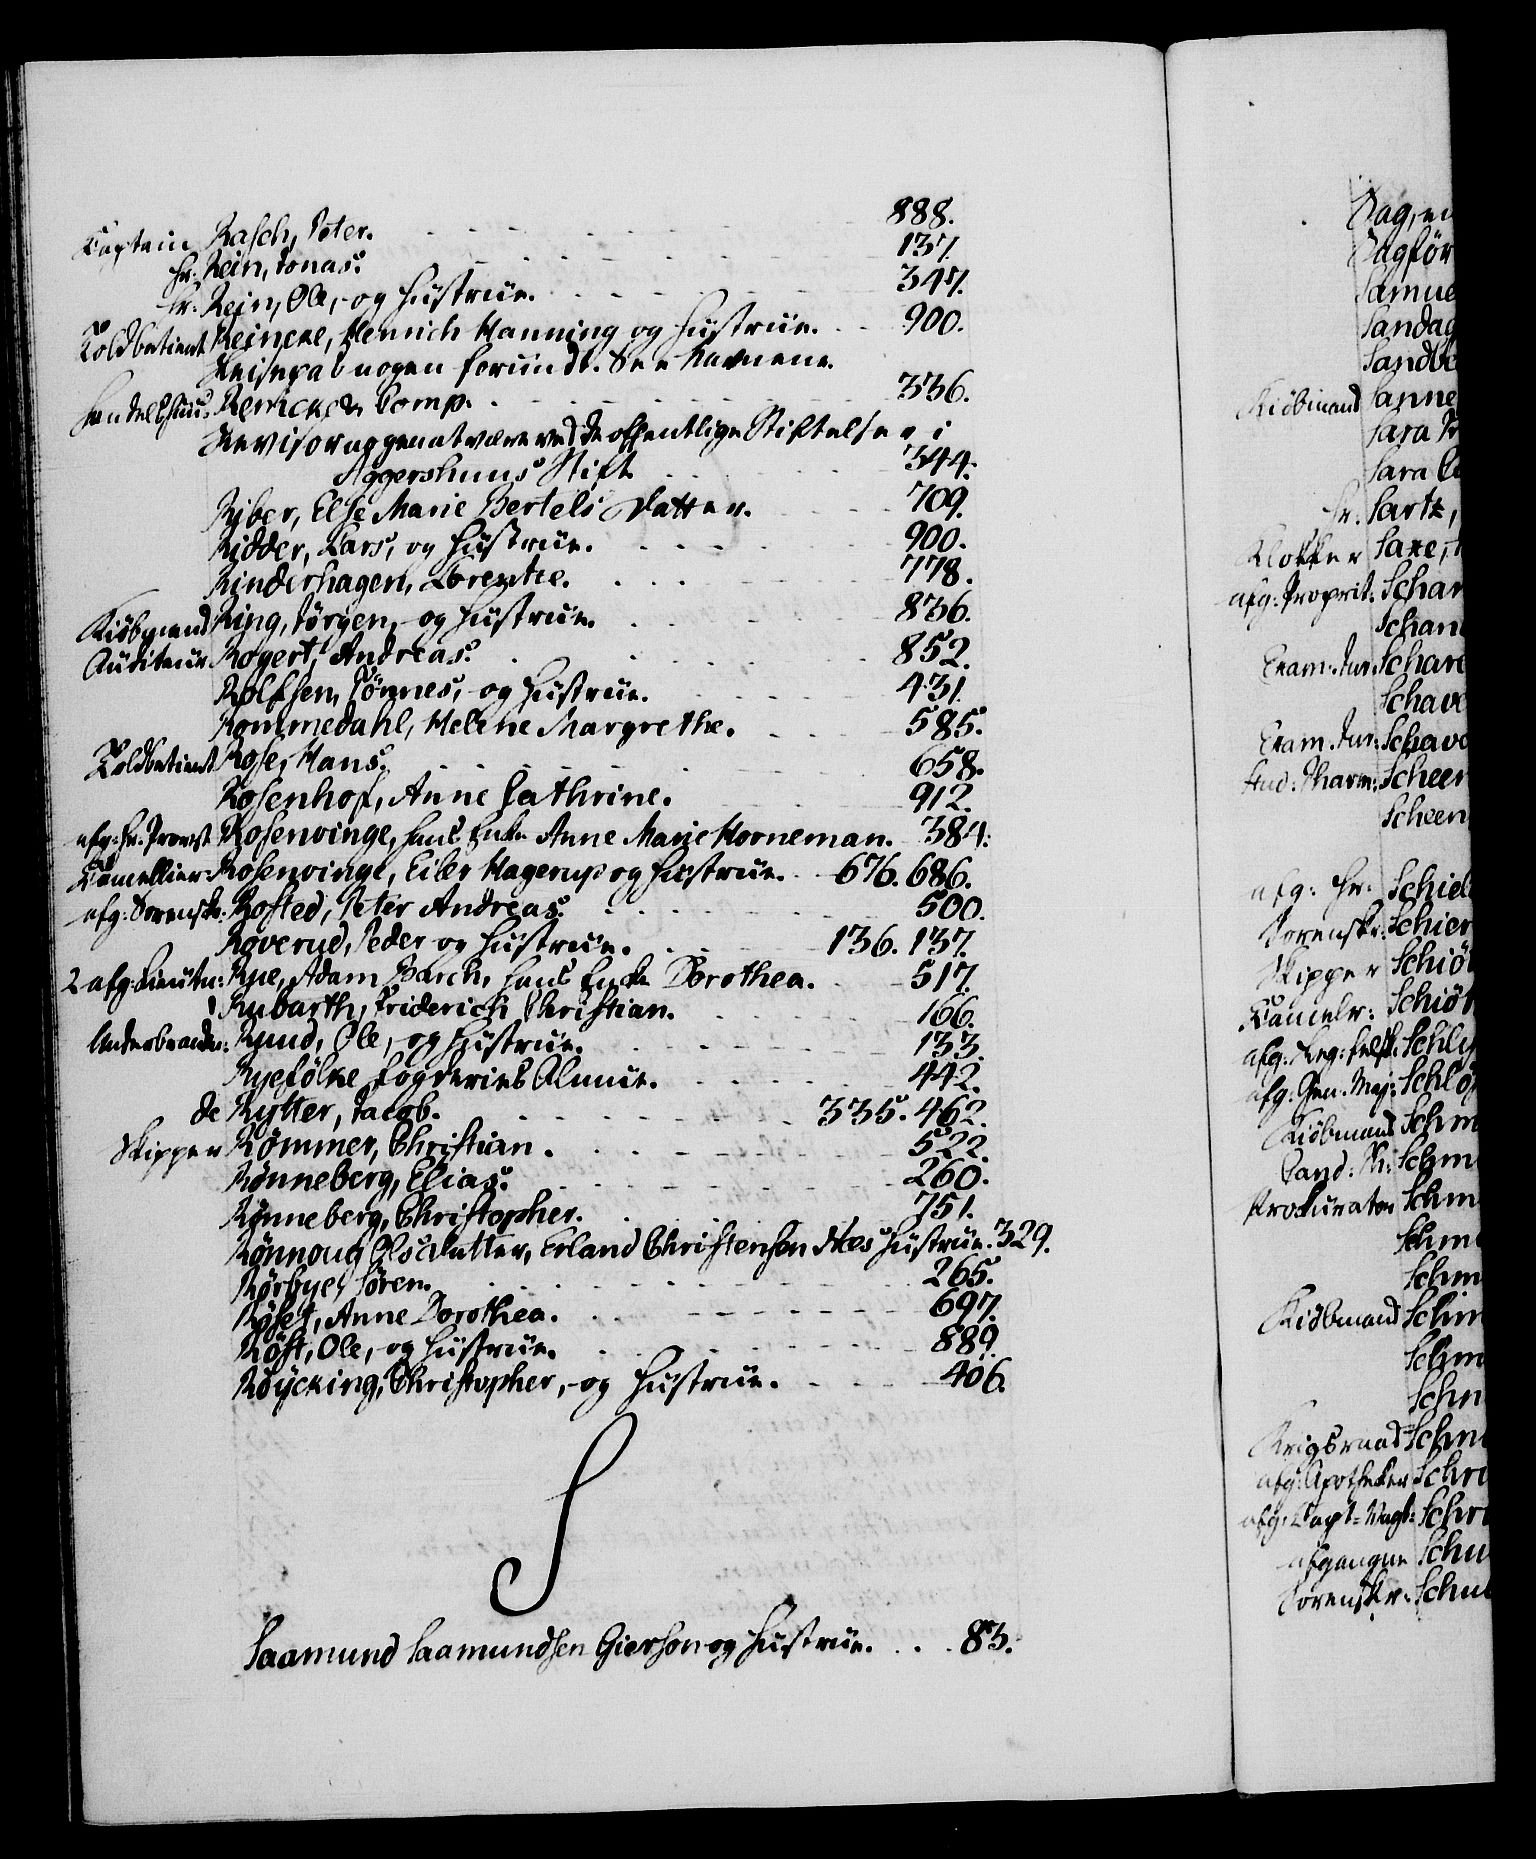 Captein Rasch, Peter. 888.
hr. Rein, Jonas. 137.
hr. Rein, Ole, og Hustrue. 347.
Toldbetient Reincke, Henrich Manning og Hustrue. 900.
Reisepas nogen forundt. See Navnene.
Handelshuus Renick & Comp. 336.
Revisor nogen at være ved de offentlige Stiftelser i
Aggershuus Stift 344.
Riber, Else Marie Bertels Datter. 709.
Ridder, Lars, og Hustrue. 900.
Rinderhagen, Lorentze. 778.
Kiøbmand Ring, Jørgen, og Hustrue. 836.
Auditeur Rogert, Andreas. 852.
Rolfsen, Tønnes, og Hustrue. 431.
Rommedahl, Helene Margrethe. 585.
Toldbetient Rose, Hans. 658.
Rosenhof, Anne Cathrine. 912.
afg: hr. Provst Rosenvinge, hans Enke Anne Marie Horneman. 384.
Cancellier: Rosenvinge, Eiler Hagerup og Hustrue. 676. 686.
afg: Sorenskr. Rosted, Peter Andreas. 500.
Roverud, Peder og Hustrue. 136. 137.
2 afg: Lieutn: Rye, Adam Barch, hans Enke Dorothea. 517.
Rubarth, Friderich Christian. 166.
Underbrandm: Ruud, Ole, og Hustrue. 133.
Ryefölke Fogderies Almue. 442.
de Rytter, Jacob. 335. 462.
Skipper Rømmer, Christian. 522.
Rønneberg, Elias. 260.
Rønneberg, Christopher. 751.
Rønnoug Olsdatter, Erland Christensen Næs Hustrue. 329.
Rørbye, Søren. 265.
Røset, Anne Dorothea. 697.
Røst, Ole, og Hustrue. 889.
Røycking, Christopher, og Hustrue. 406.
S
Saamund Saamundsen Gierson og Hustrue. 83.
Sag, en
Sagför
Samue
Sandag
Sandbe
Kiöbmand Sanne
Sara
Sara
hr. Sartz,
Klokker Saxe,
afg: Proprit: Schar
Schan
Exam: Jur: Schar
Schav
Exam. Jur: Schav
Stud: Pharm: Scheer
Scheen
afg: hr. Schiel
Sorenskr: Schier
Skipper Schiö
Cancelr: Schiöt
afg: Reg: Feldsk: Schly
afg: Gen: Maj: Schlö
Kiöbmand Schm
Cand: Schm
Prokurator Schm
Schm
Schm
Kiöbmand Schm
Schm
Schn
Krigsraad Schn
afg: Apotheker Schr
afg: Capt: Schr
afgangne Schu
Sorenskr: Schu